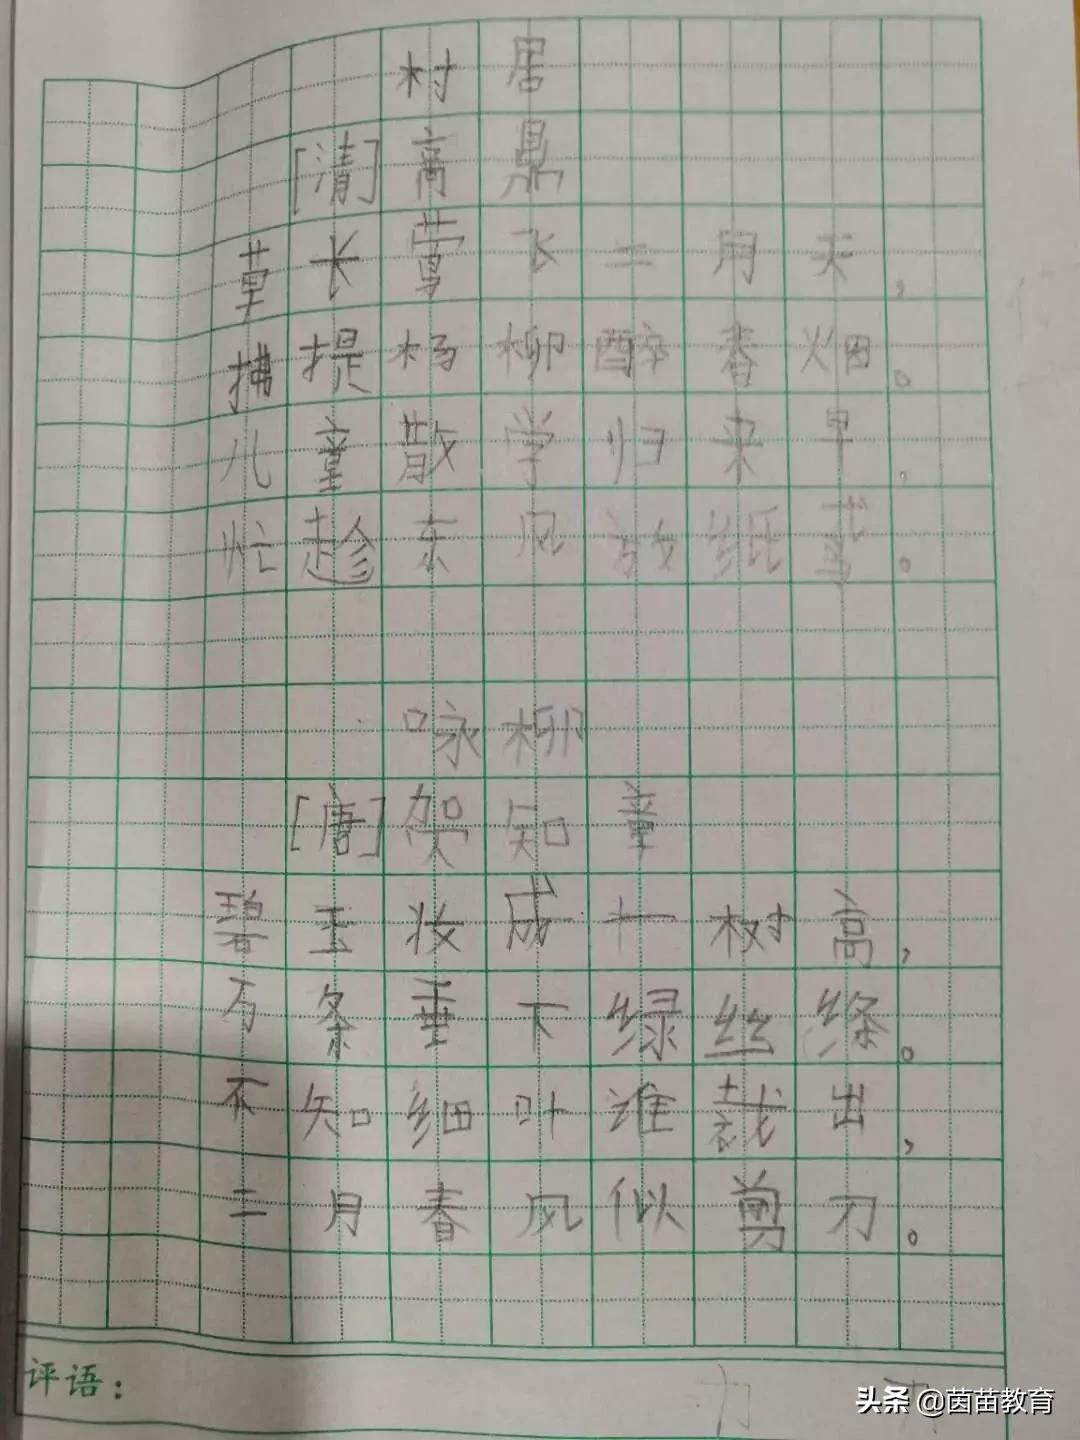 村居
[清]高鼎
草长莺飞二月天，
拂提杨柳醉春烟。
儿童散学归来早，
忙趁东风放纸鸢。
咏柳
[唐]贺知章
碧玉妆成一树高，
万条垂下绿丝绦。
不知细叶谁裁出，
二月春风似剪刀。
评语：
头条 @茵苗教育